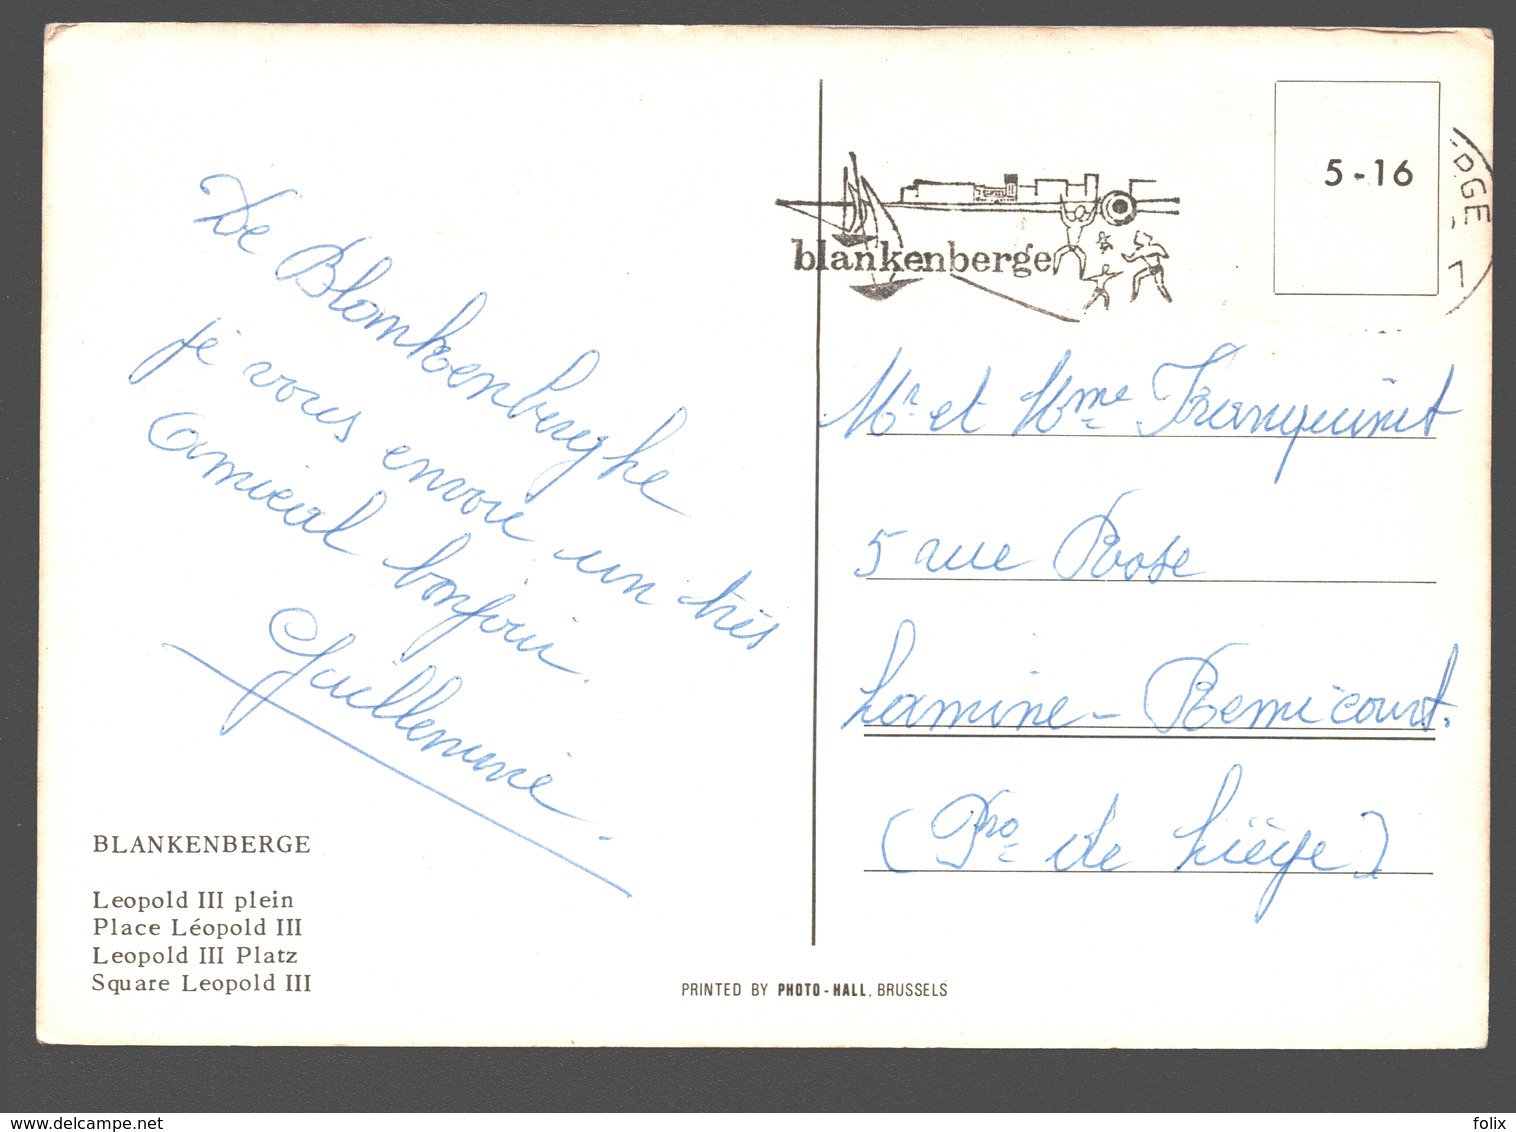 De Blankenberghe
je vous envoie un très
amical bonjour.
Guillemine.
BLANKENBERGE
Leopold III plein
Place Léopold III
Leopold III Platz
Square Leopold III
PRINTED BY PHOTO-HALL, BRUSSELS
blankenberge
5-16
Mr et Mme Franquinet
5 rue Rose
Lamine - Remicourt.
(Pro de Liège)
delcampe.net
folix